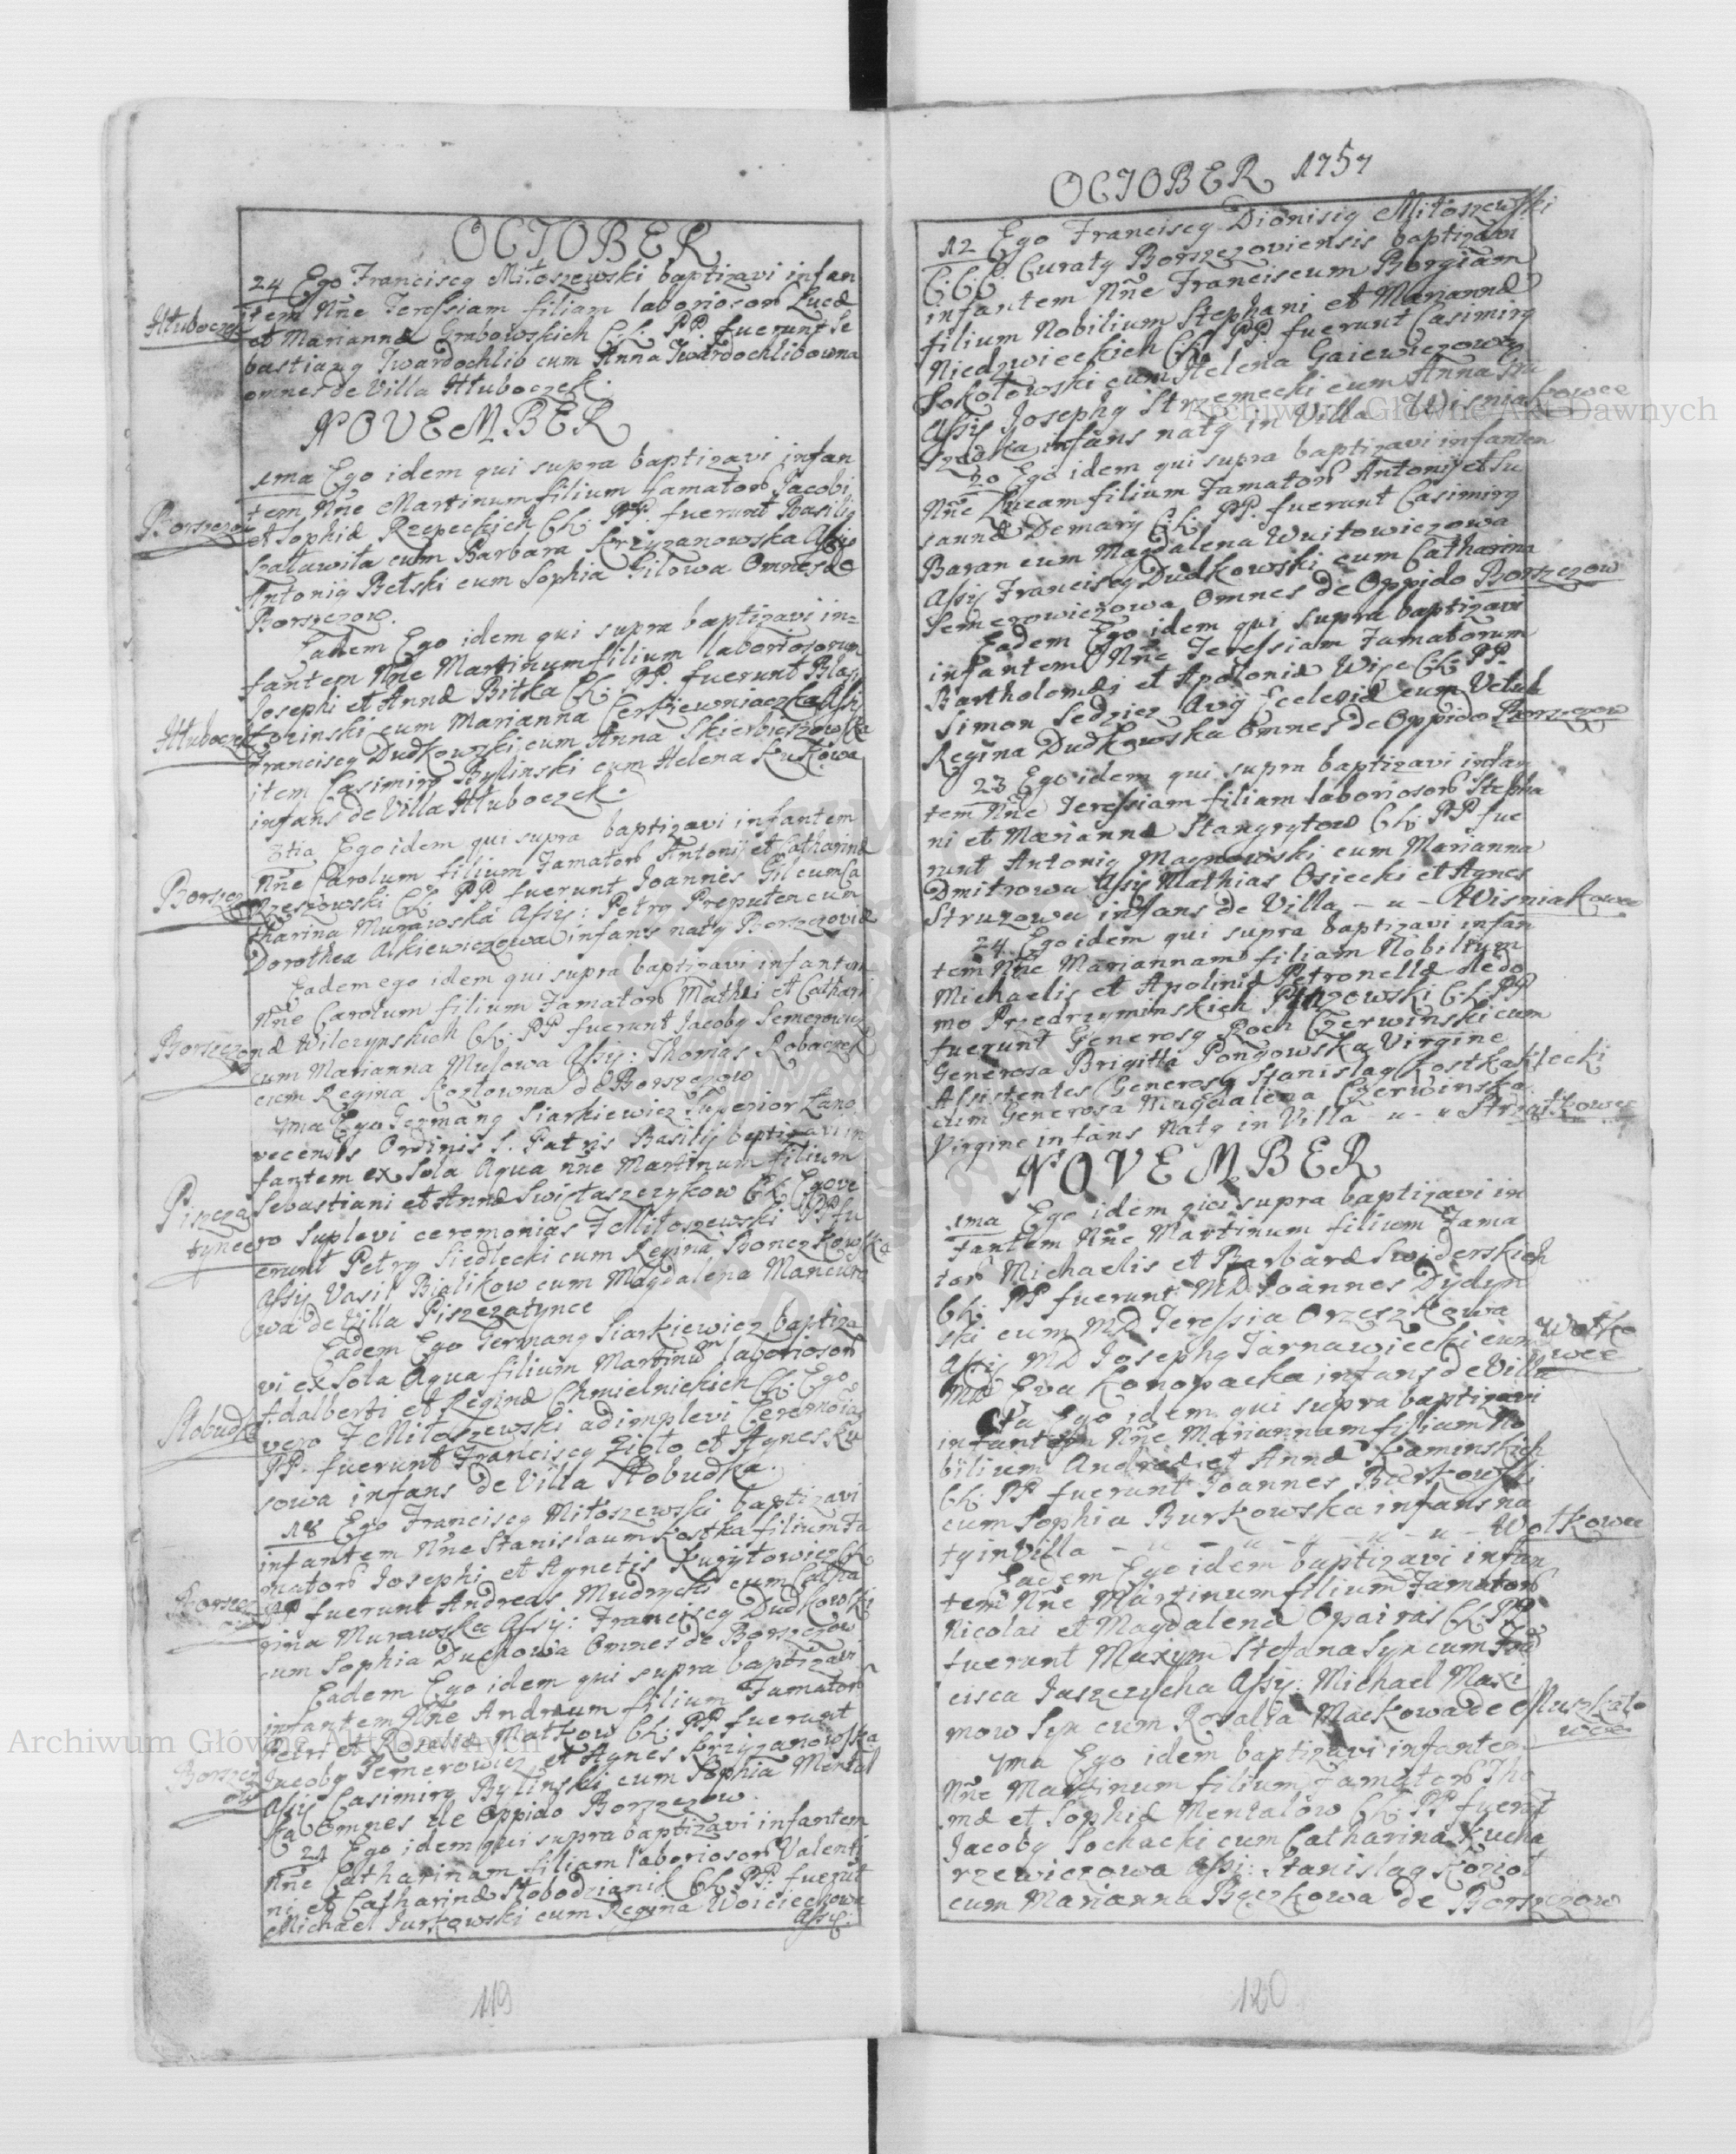 OCTOBER
24 Ego Franciscq Miłoszewski baptizavi infan
tem Nñe Teressiam filiam laborioson Lucæ
Hłuboczek
et Mariannæ Grabowskich C.L: PP. fuerunt Se
bastianq Twardochlib cum Anna Twardochlibowna
omnes de Villa Hłuboczek.
NOVEMBER
1ma Ego idem qui supra baptizavi infan
tem Nñe Martinum filium famator Jacobi
Borszczow
et Sophiæ Rzepeckich C.L: PP. fuerunt Basiliq
Szaławiła cum Barbara Krzyzanowska Assis
Antoniq Betski cum Sophia Gilowa Omnes de
Borszczow.
Eadem Ego idem qui supra baptizavi in=
fantem Nñe Martinum filium laboriosorum
Josephi et Annæ Bitka C.L: PP. fuerunt Blasi
Hłuboczek
Łozinski cum Marianna Assi
Franciscq Dudkowski cum Anna Skierbieszowska
item Casimirq Bylinski cum Helena Kutkowa
infans de Villa Hłuboczek.
3tia Ego idem qui supra baptizavi infantem
Nñe Carolum filium Famator Antonij et Catharinæ
Borszcz
Rzeszowski C.L: PP. fuerunt Joannes Gil cum Ca
tharina Murawska Assis: Petrq Preputen cum
Dorothea Alkiewiczowa infans natq Borszczoviæ
Eadem ego idem qui supra baptizavi infantem
Nñe Carolum filium Famator Mathei et Cathari
Borszczo
næ Wilczynskich C.L: PP fuerunt Jacobq Semerowicz
cum Marianna Mulowa Assis: Thomas Robaczek
cum Regina Kozłowna de Borszczow
7ma Ego Germanq Siarkiewicz Superior Zano
vecensis Ordinis S. Patris Basilij baptizavi in
fantem ex Sola Aqua nñe Martinum filium
Piszcza
tynce
Sebastiani et Annæ Swiętaszczykow C.L: Ego ve
ro Suplevi ceremonias F Miłoszewski PP fu
erunt Petrq Siedlecki cum Regina Bonczkowska
Assis Vasil Bialikow cum Magdalena Mancuro
wa de Villa Piszczatynce
Eadem Ego Germanq Siarkiewicz baptiza
vi ex Sola Aqua filium Martinum laborioson
Adalberti et Reginæ Chmielnickich C.L: Ego
Słobudka
vero F Miłoszewski adimplevi Ceremonias
PP. fuerunt Franciscq Zioło et Agnes Ru
sowa infans de Villa Słobudka.
18 Ego Franciscq Miłoszewski baptizavi
infantem Nñe Stanislaum Kostka filium Fa
mator Josephi et Agnetis Kuzytowicz C.L:
Borszcz
PP fuerunt Andreas Mudrycki cum Catha
rina Murawska Assis: Franciscq Dudkowski
cum Sophia Duchowa Omnes de Borszczow
Eadem Ego idem qui supra baptizavi
infantem Nñe Andream filium Famator
Petri et Rosaliæ Matkow C.L: PP. fuerunt
Borszcz
Jacobq Semerowicz et Agnes Krzyzanowska
Assis Casimirq Bylinski cum Sophia Mental
ska Omnes de Oppido Borszczow.
21 Ego idem qui supra baptizavi infantem
Nñe Catharinam filiam laborioson Valenti
ni et Catharinæ Słobodzianik C.L: PP. fuerut
Michael Jurkowski cum Regina Woiciechowa
Assis:
119
OCTOBER 1757
12 Ego Franciscq Dionisiq Miłoszewski
C.C.C. Curatq Borszczoviensis baptizavi
infantem Nñe Franciscum Borgiam
filium Nobilium Stephani et Mariannæ
Niedzwieckich C.L: PP. fuerunt Casimirq
Sokołowski cum Helena Gaiewiczowa
Assis Josephq Strzemecki cum Anna
infans natq in Villa Wisniakowce
20 Ego idem qui supra baptizavi infantem
Nñe Lucam filium Famator Antonij et Su
sannæ Demary C.L: PP. fuerunt Casimirq
Baran cum Magdalena Wuitowiczowa
Assis Franciscq Dudkowski cum Catharina
Semerowiczowa Omnes de Oppido Borszczow
Eadem Ego idem qui supra baptizavi
infantem Nñe Teressiam Famatorum
Bartholomæi et Apoloniæ Wise C.L: PP.
Simon Sedzicz Avij Ecclesiæ cum Vetula
Regina Dudkowska Omnes de Oppido Borszczow
23 Ego idem qui supra baptizavi infan
tem Nñe Teressiam filiam laborioson Stepha
ni et Mariannæ Stangrytow C.L: PP. fue
runt Antoniq Magnowski cum Marianna
Dmitrowa Assis Mathias Osiecki et Agnes
Struzowa infans de Villa - u - Wisniakowce
24 Ego idem qui supra baptizavi infan
tem Nñe Mariannam filiam Nobilium
Michaelis et Apoliniæ Petronellæ de do
mo Przedrzyminskich C.L: PP
fuerunt Generosq Roch Czerwinski cum
Generosa Brigitta Pongowska Virgine
Assistentes Generosq Stanislaq Kostka Klecki
cum Generosa Magdalena Czerwinska
Virgine infans Natq in Villa - u - u Strzałkowce
NOVEMBER
1ma Ego idem qui supra baptizavi in
fantem Nñe Martinum filium Fama
tor Michaelis et Barbaræ Swiderskich
C.L: PP fuerunt MD Joannes Dydyn
ski cum MD Teressia Orzeszkowa
Assis MD Josephq Tarnawiecki cum
Wołko
wce
MD Eva Konopacka infans de Villa
Ego idem qui supra baptizavi
infantem Nñe Mariannam filiam No
bilium Andreæ et Annæ Kaminskich
C.L: PP fuerunt Joannes Burkowski
cum Sophia Burkowska infans na
tq in Villa - u - u - u - u - Wołkowce
Eadem Ego idem baptizavi infan
tem Nñe Martinum filium Famator
Nicolai et Magdalenæ Opairas C.L: PP.
fuerunt Maxym Stefana Syn cum Fran
cisca Jaszczycha Assis: Michael Maxi
mow Syn cum Rosalia Mackowa de Muszkato
wce
7ma Ego idem baptizavi infantem
Nñe Martinum filium Famator Tho
mæ et Sophiæ Mentalow C.L: PP fuerut
Jacobq Sochacki cum Catharina Kucha
rzewiczowa Assis: Stanislaq Kozioł
cum Marianna Bączkowa de Borszczow
120
Archiwum Główne Akt Dawnych
Archiwum Główne Akt Dawnych